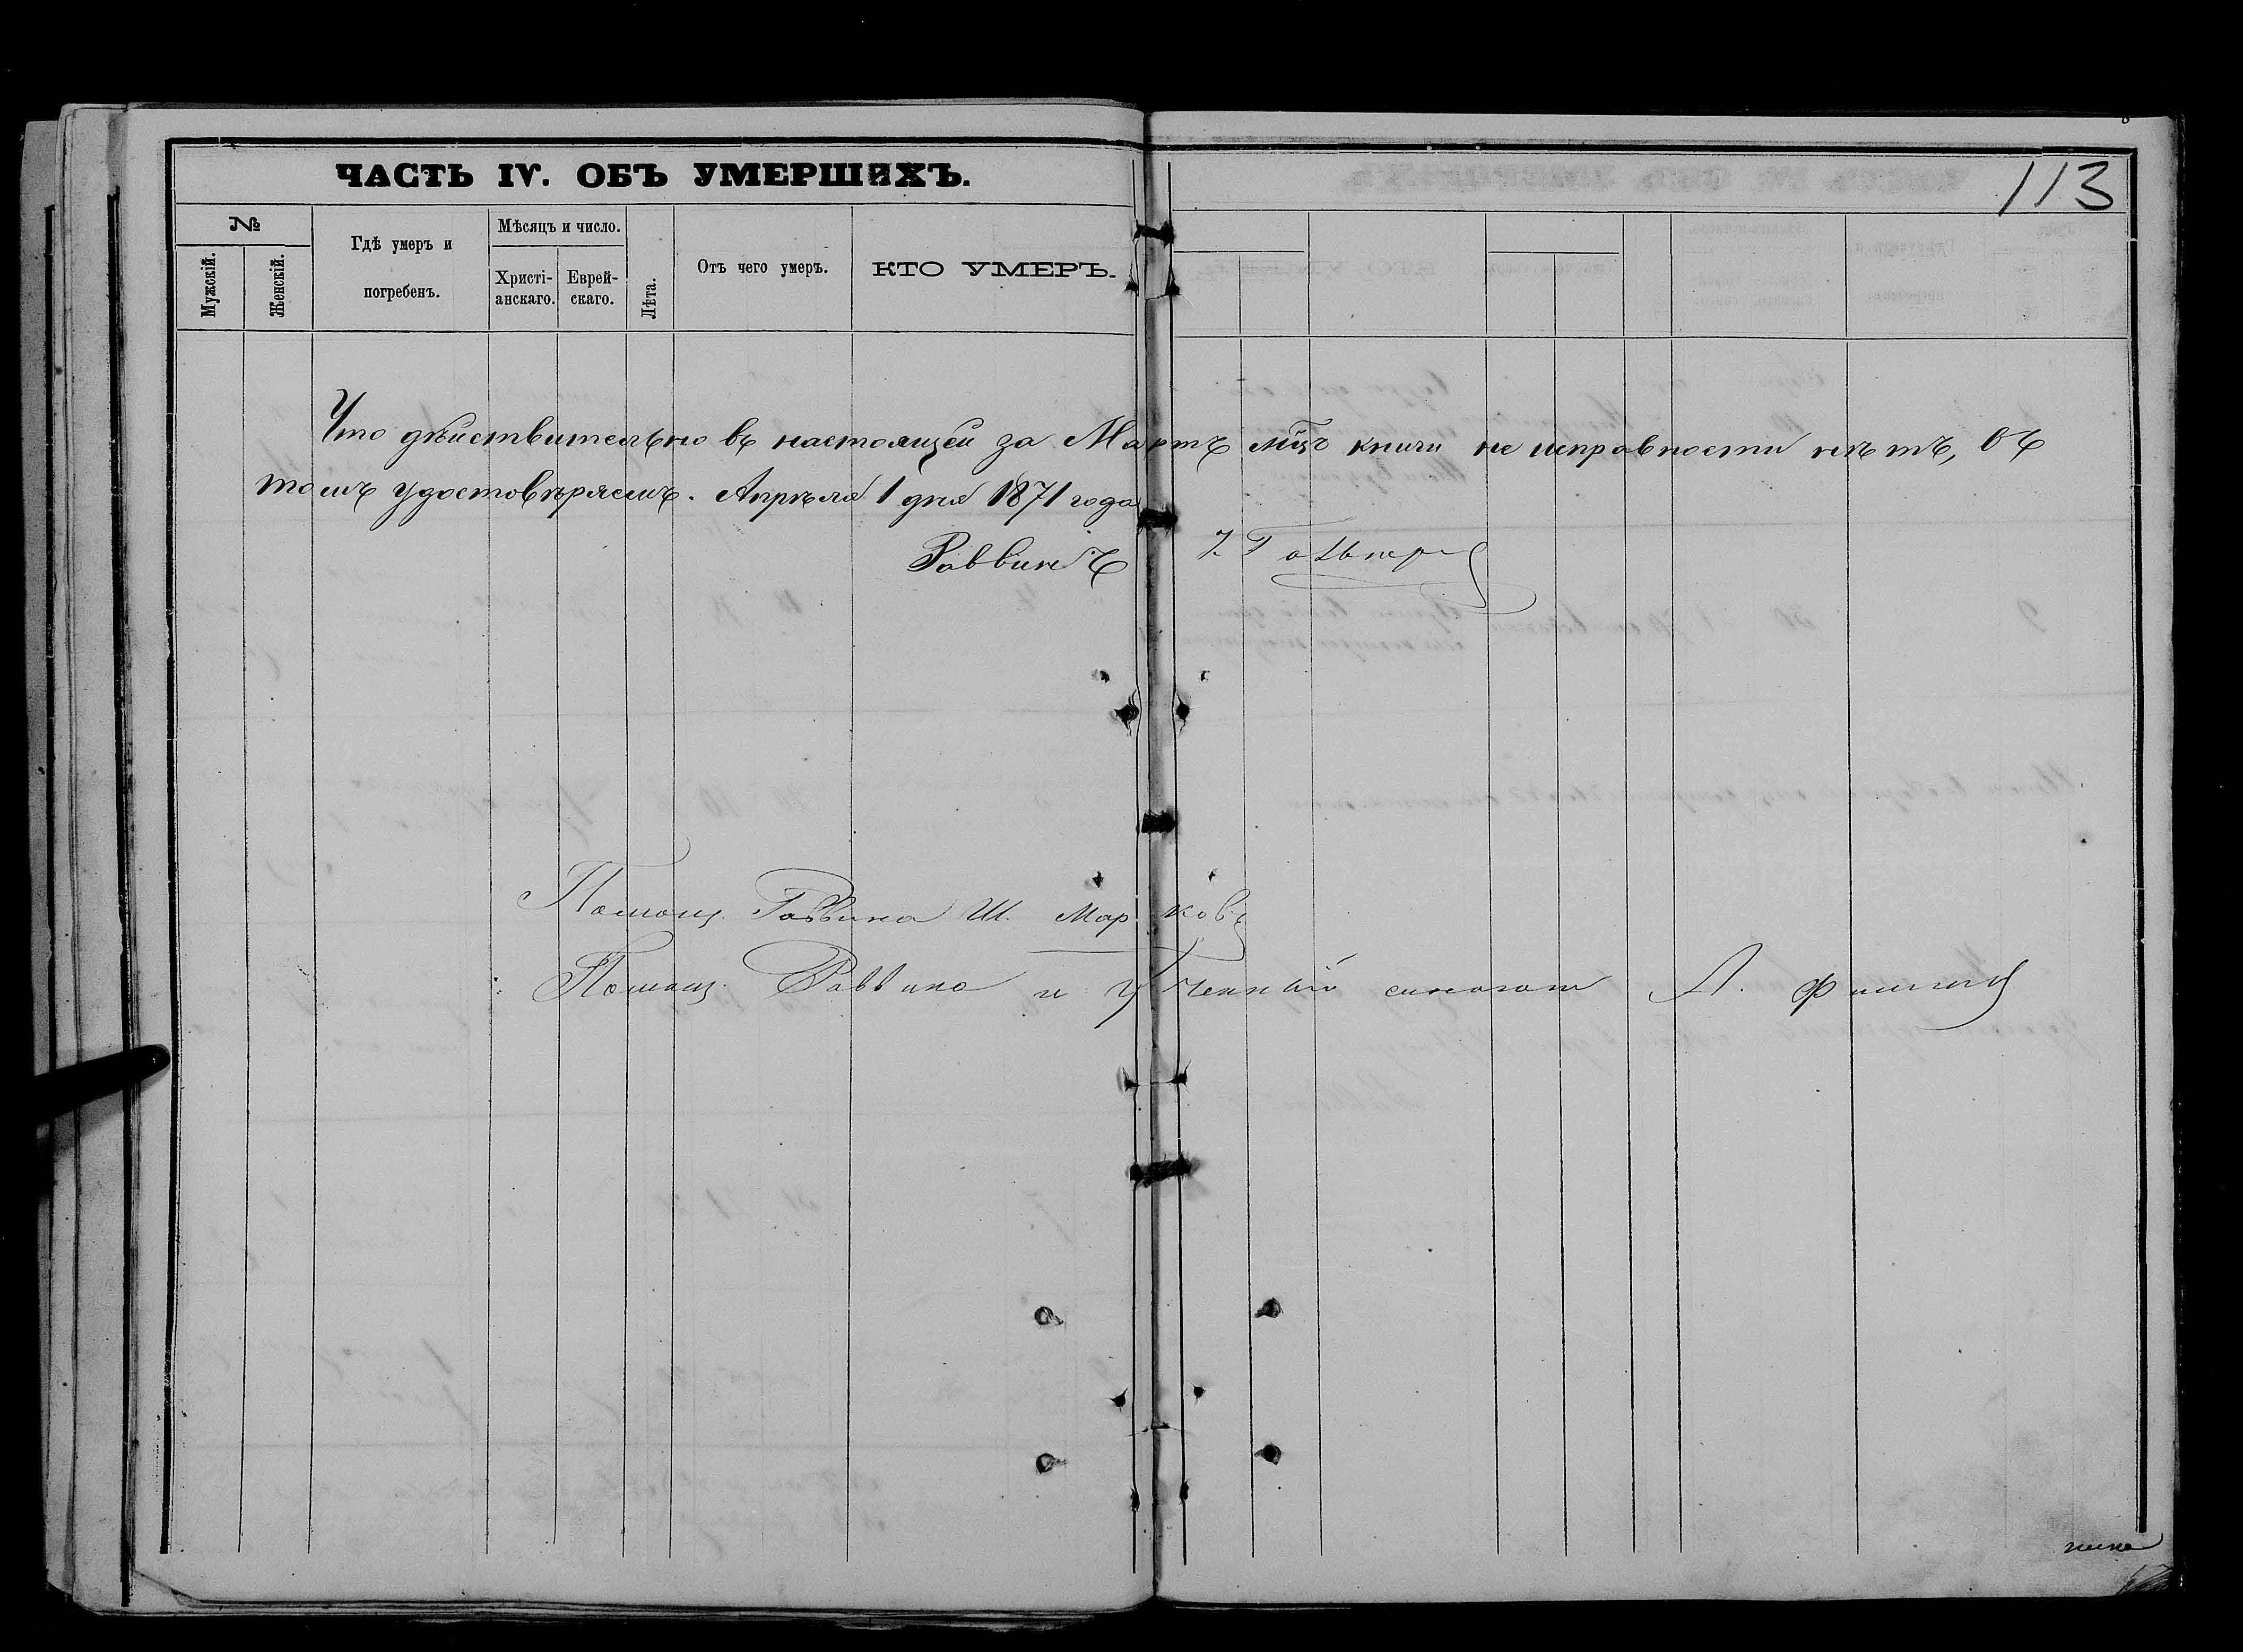 ЧАСТЬ IV. ОБЪ УМЕРШИХЪ.
113
№
Мужскій.
Женскій.
Гдѣ умеръ и
погребенъ.
Мѣсяцъ и число.
Христі-
анскаго.
Еврей-
скаго.
Лѣта.
Отъ чего умеръ.
КТО УМЕРЪ.
Что дѣйствительно въ настоящей за Мартъ мцъ книги не исправности нѣтъ, въ
томъ удостовѣряемъ. Апрѣля 1 дня 1871 года
Раввинъ
Помощ. Раввина Ш. Марковъ
Помощ. Раввина и Ученный